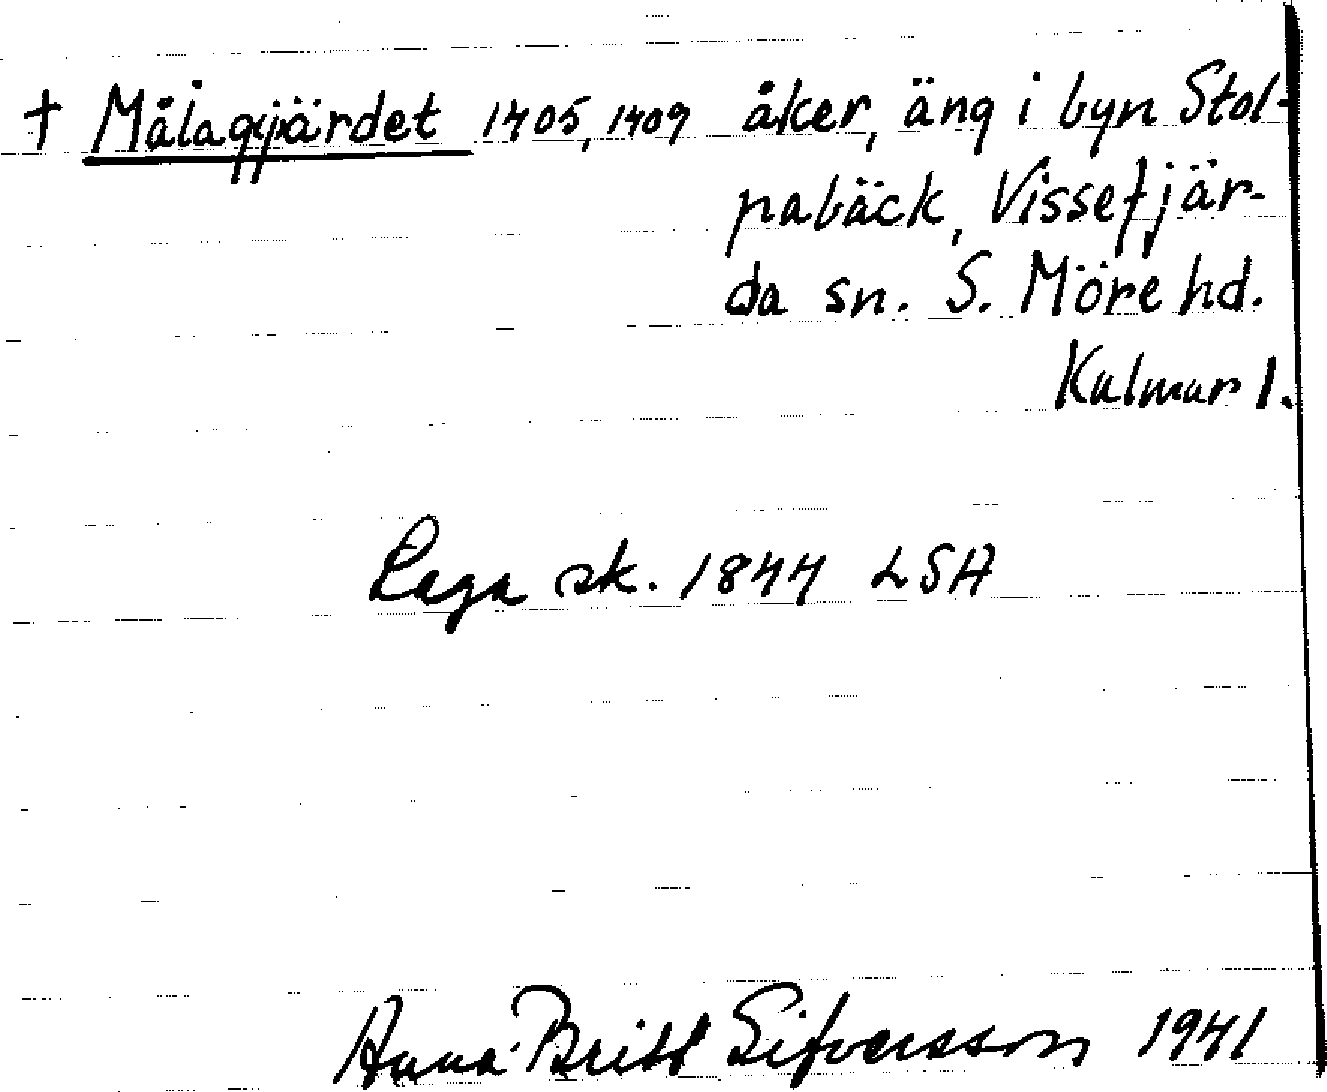 † Målagjärdet 1405, 1409 åker, äng i byn Stol-
pabäck, Vissefjär-
da sn. S. Möre hd.
Kalmar l.
Laga sk. 1844 LSA
Anna-Britt Sifversson 1941